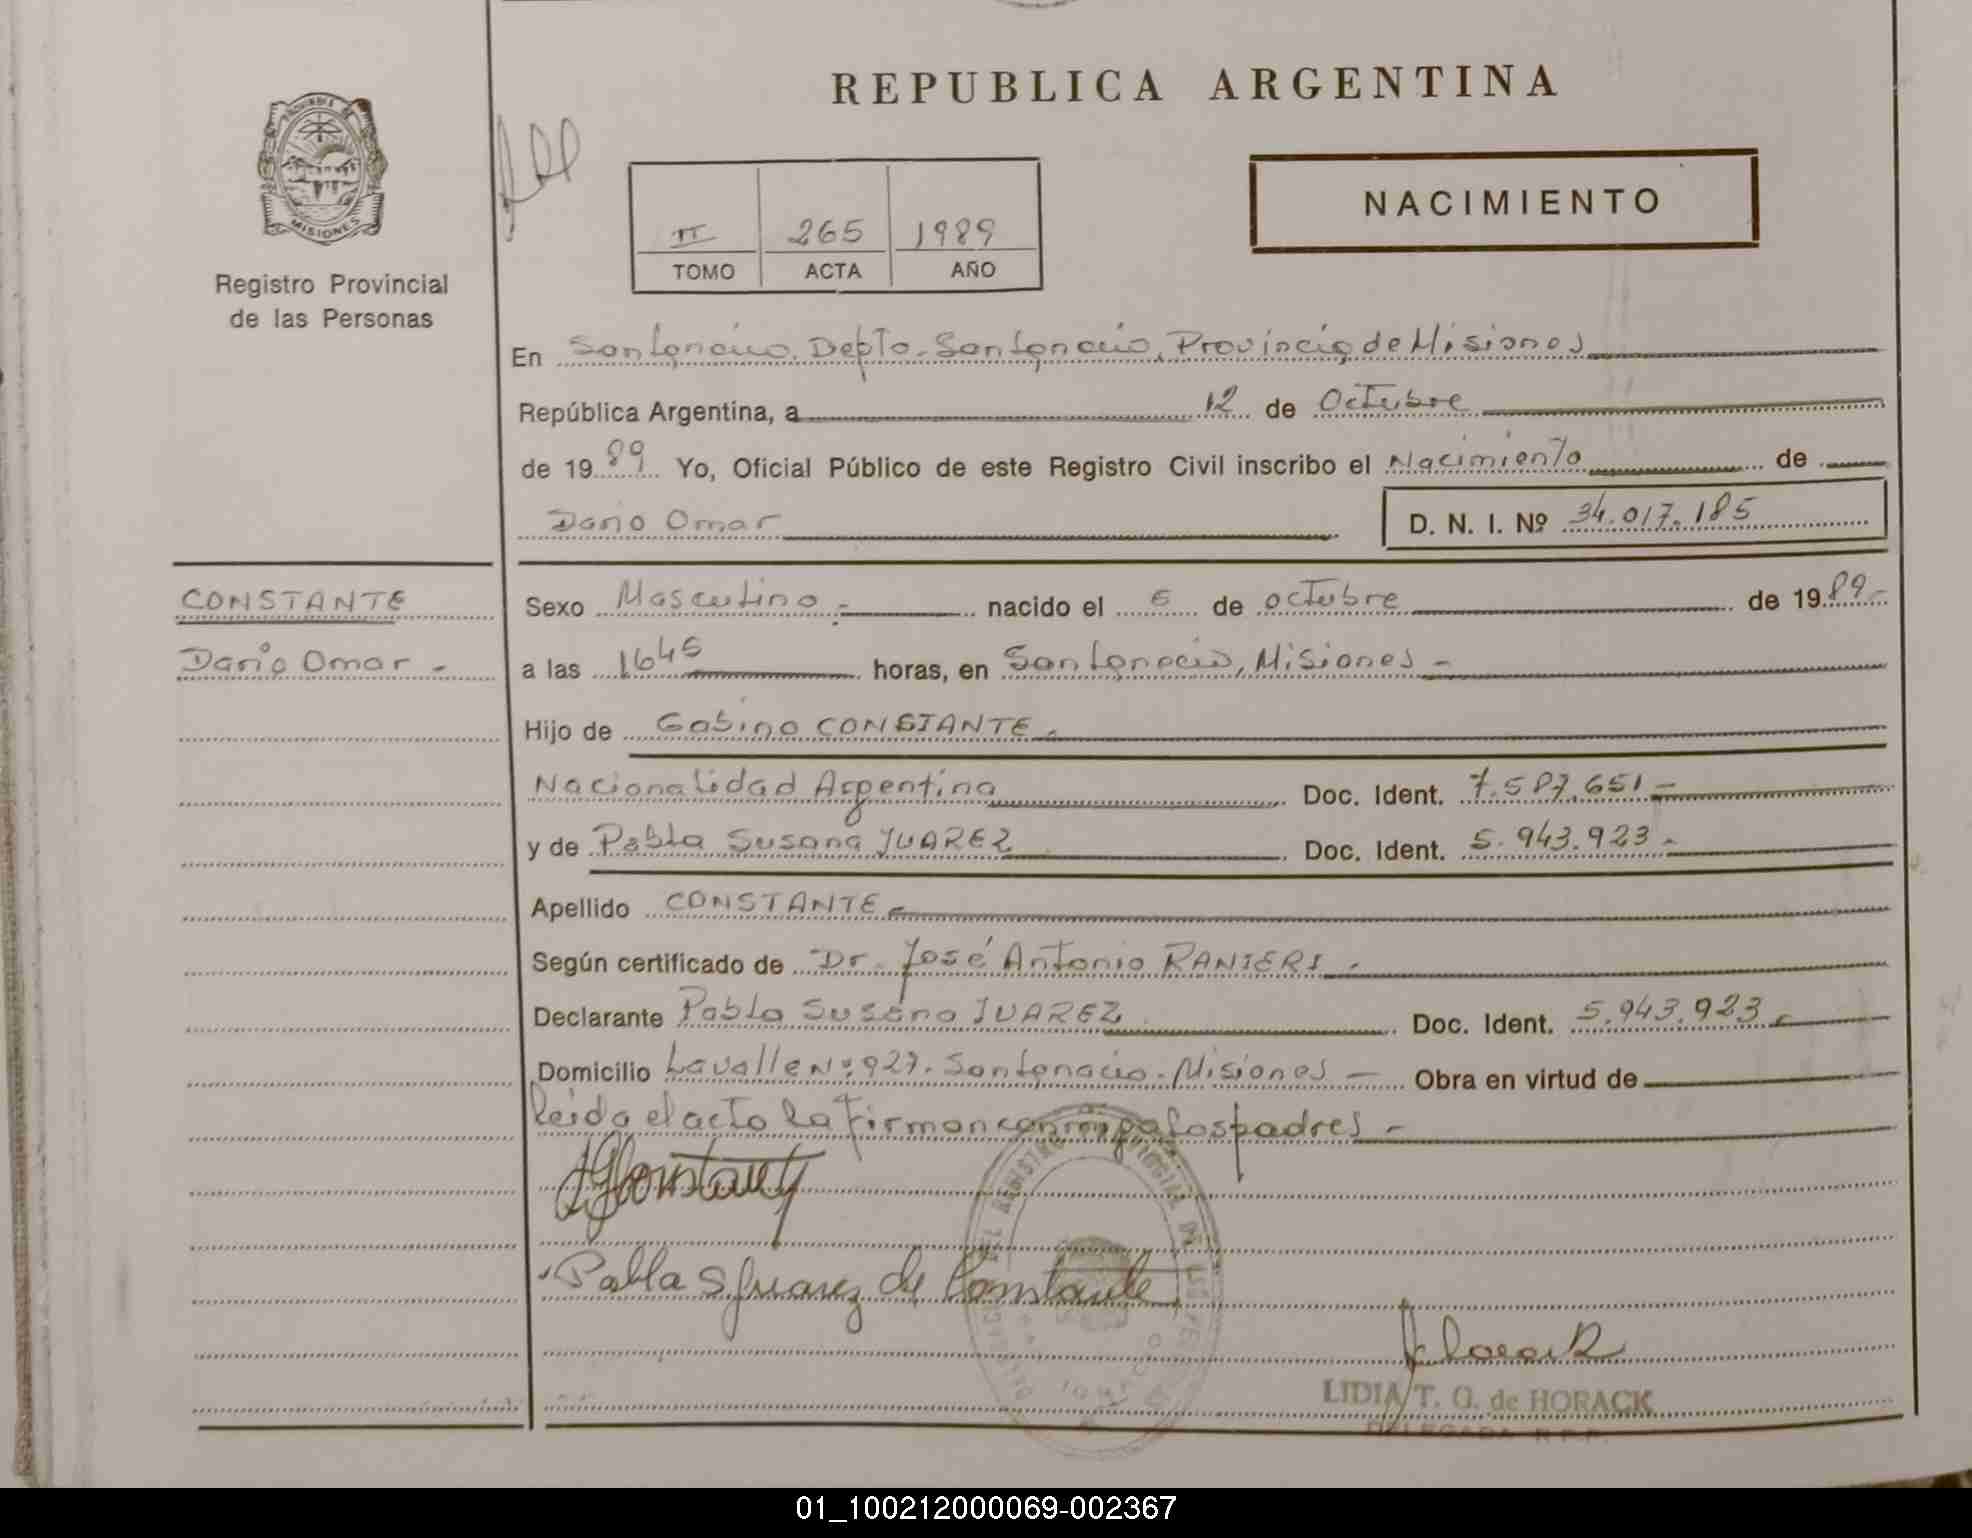 REPUBLICA ARGENTINA
PROVINCIA DE
MISIONES
Registro Provincial
de las Personas
II 265 1989
TOMO ACTA AÑO
NACIMIENTO
En San Ignacio, Depto. San Ignacio, Provincia de Misiones
República Argentina, a 12 de Octubre
de 1989 Yo, Oficial Público de este Registro Civil inscribo el Nacimiento de
Dario Omar D. N. I. Nº 34.017.185
CONSTANTE
Dario Omar -
Sexo Masculino.- nacido el 6 de octubre de 1989.-
a las 1645 horas, en San Ignacio, Misiones -
Hijo de Gabino CONSTANTE.
Nacionalidad Argentina Doc. Ident. 7.587.651 -
y de Pabla Susana JUAREZ Doc. Ident. 5.943.923 -
Apellido CONSTANTE -
Según certificado de Dr. José Antonio RANIERI -
Declarante Pabla Susana JUAREZ Doc. Ident. 5.943.923 -
Domicilio Lavalle Nº 927. San Ignacio - Misiones - Obra en virtud de
leida el acto la firman conmigo los padres -
Pabla S Juarez de Constante
LIDIA T. G. de HORACK
DELEGADA R.P.P.
01_100212000069-002367